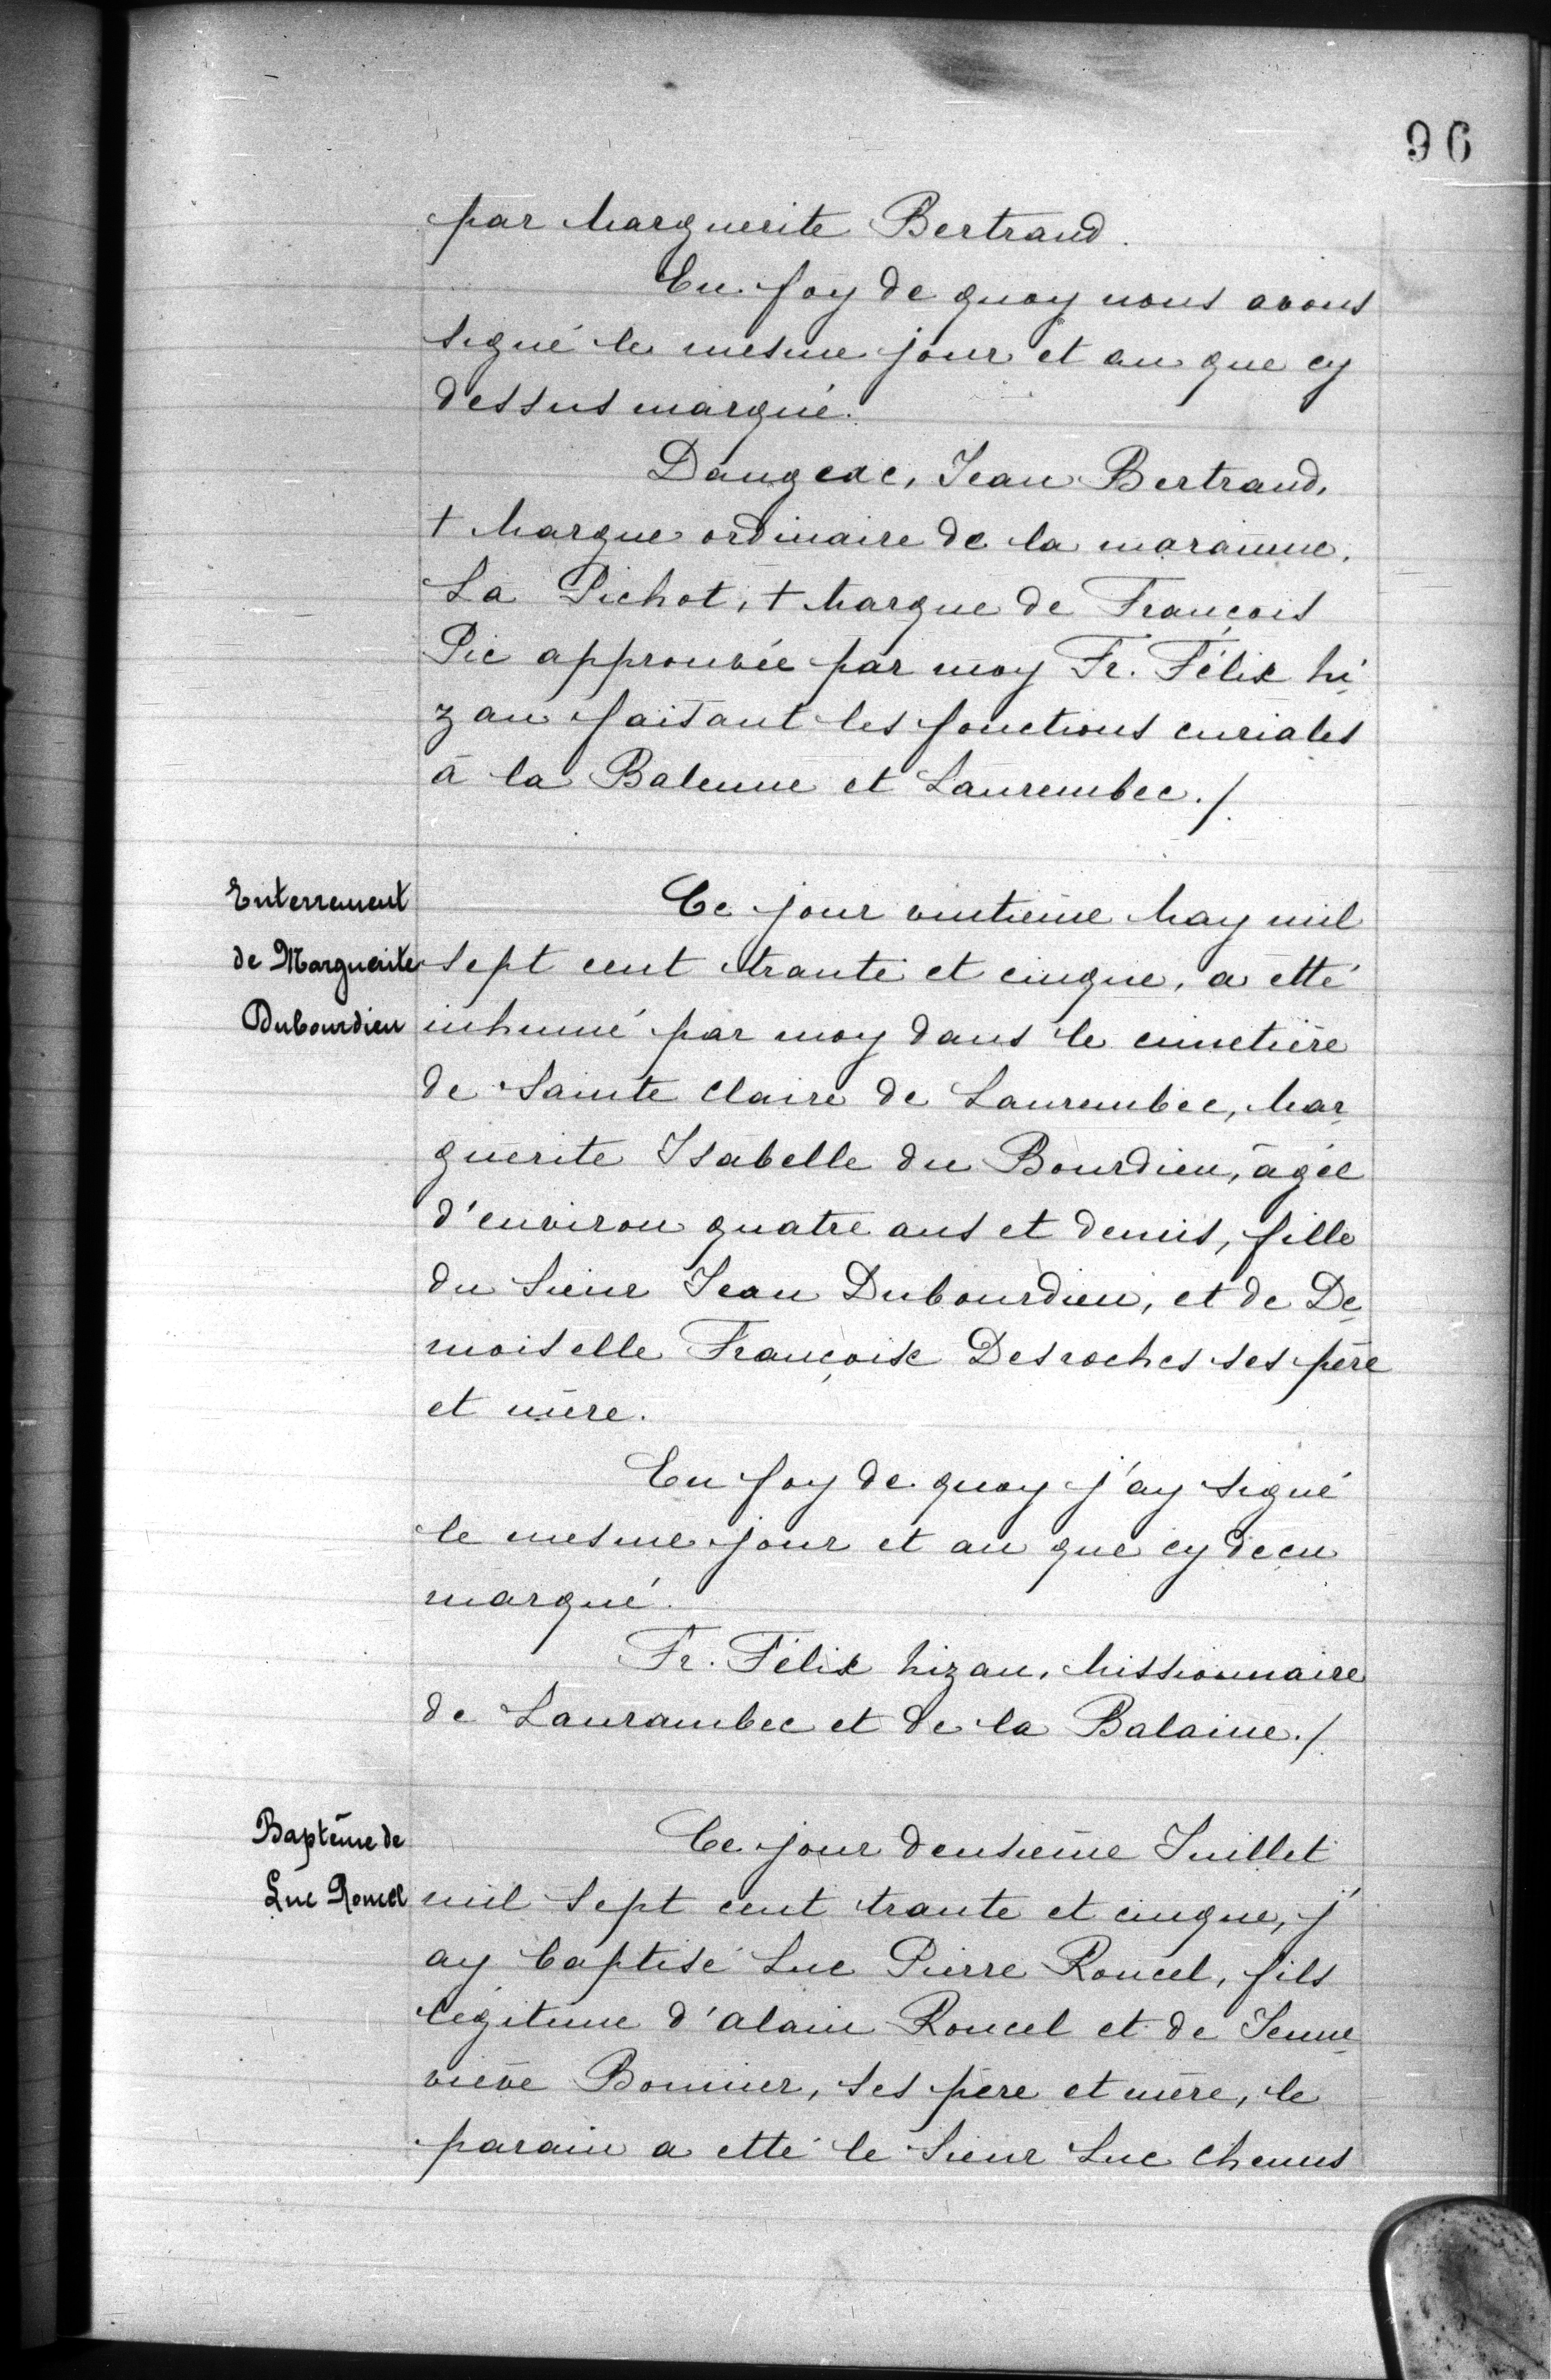 96
par Marguerite Bertrand.
En foy de quoy nous avons
signé le mesme jour et an que cy
dessus marqué.
Dangeac, Jean Bertrand,
+ Marque ordinaire de la maraine,
La Pichot, + Marque de François
Pic approuvée par moy Fr. Félix hi
zan faisant les fonctions curiales
à la Balenne et Laurembec./.
Enterrement
de Marguerite
Dubourdieu
Ce jour vintième May mil
sept cent trante et cinque, a etté
inhumé par moy dans le cimetière
de Sainte Claire de Laurembec, Mar
guerite Isabelle du Bourdieu, âgée
d'environ quatre ans et demis, fille
du Sieur Jean Dubourdieu, et de De
moiselle Françoise Desroches ses père
et mère.
En foy de quoy j'ay signé
le mesme jour et an que cy decu
marqué.
Fr. Félix hizan, Missionnaire
de Laurambec et de la Balaine./.
Baptême de
Luc Roucel
Ce jour deusième Juillet
mil sept cent trante et cinque, j'
ay baptisé Luc Pierre Roucel, fils
légitime d'alain Roucel et de Jenne
viève Bonnier, ses père et mère, le
parain a etté le Sieur Luc Chenus